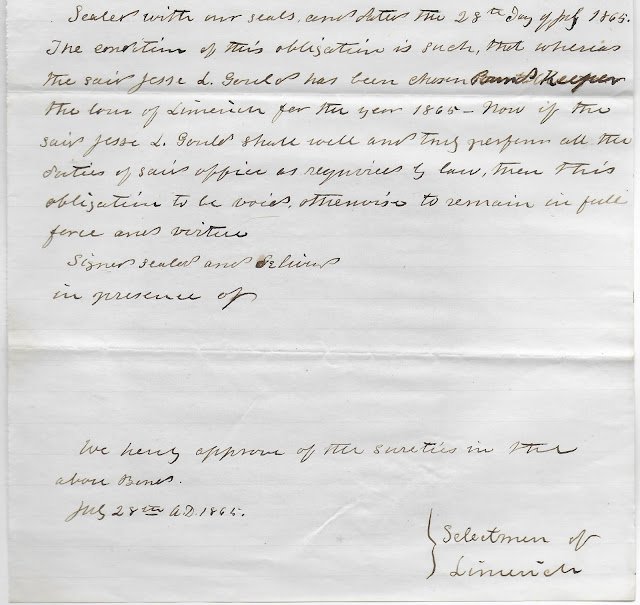 Sealed with our seals, and dated the 28th Day of July 1865.
The condition of this obligation is such, that whereas
the said Jesse L. Gould has been chosen Pound Keeper
the town of Limerick for the year 1865 - Now if the
said Jesse L. Gould shall well and truly perform all the
duties of said office as required by law, then this
obligation to be void, otherwise to remain in full
force and virtue
Signed sealed and delivered
in presence of
We hereby approve of the sureties in the
above Bond.
July 28th A.D. 1865.
Selectmen of
Limerick